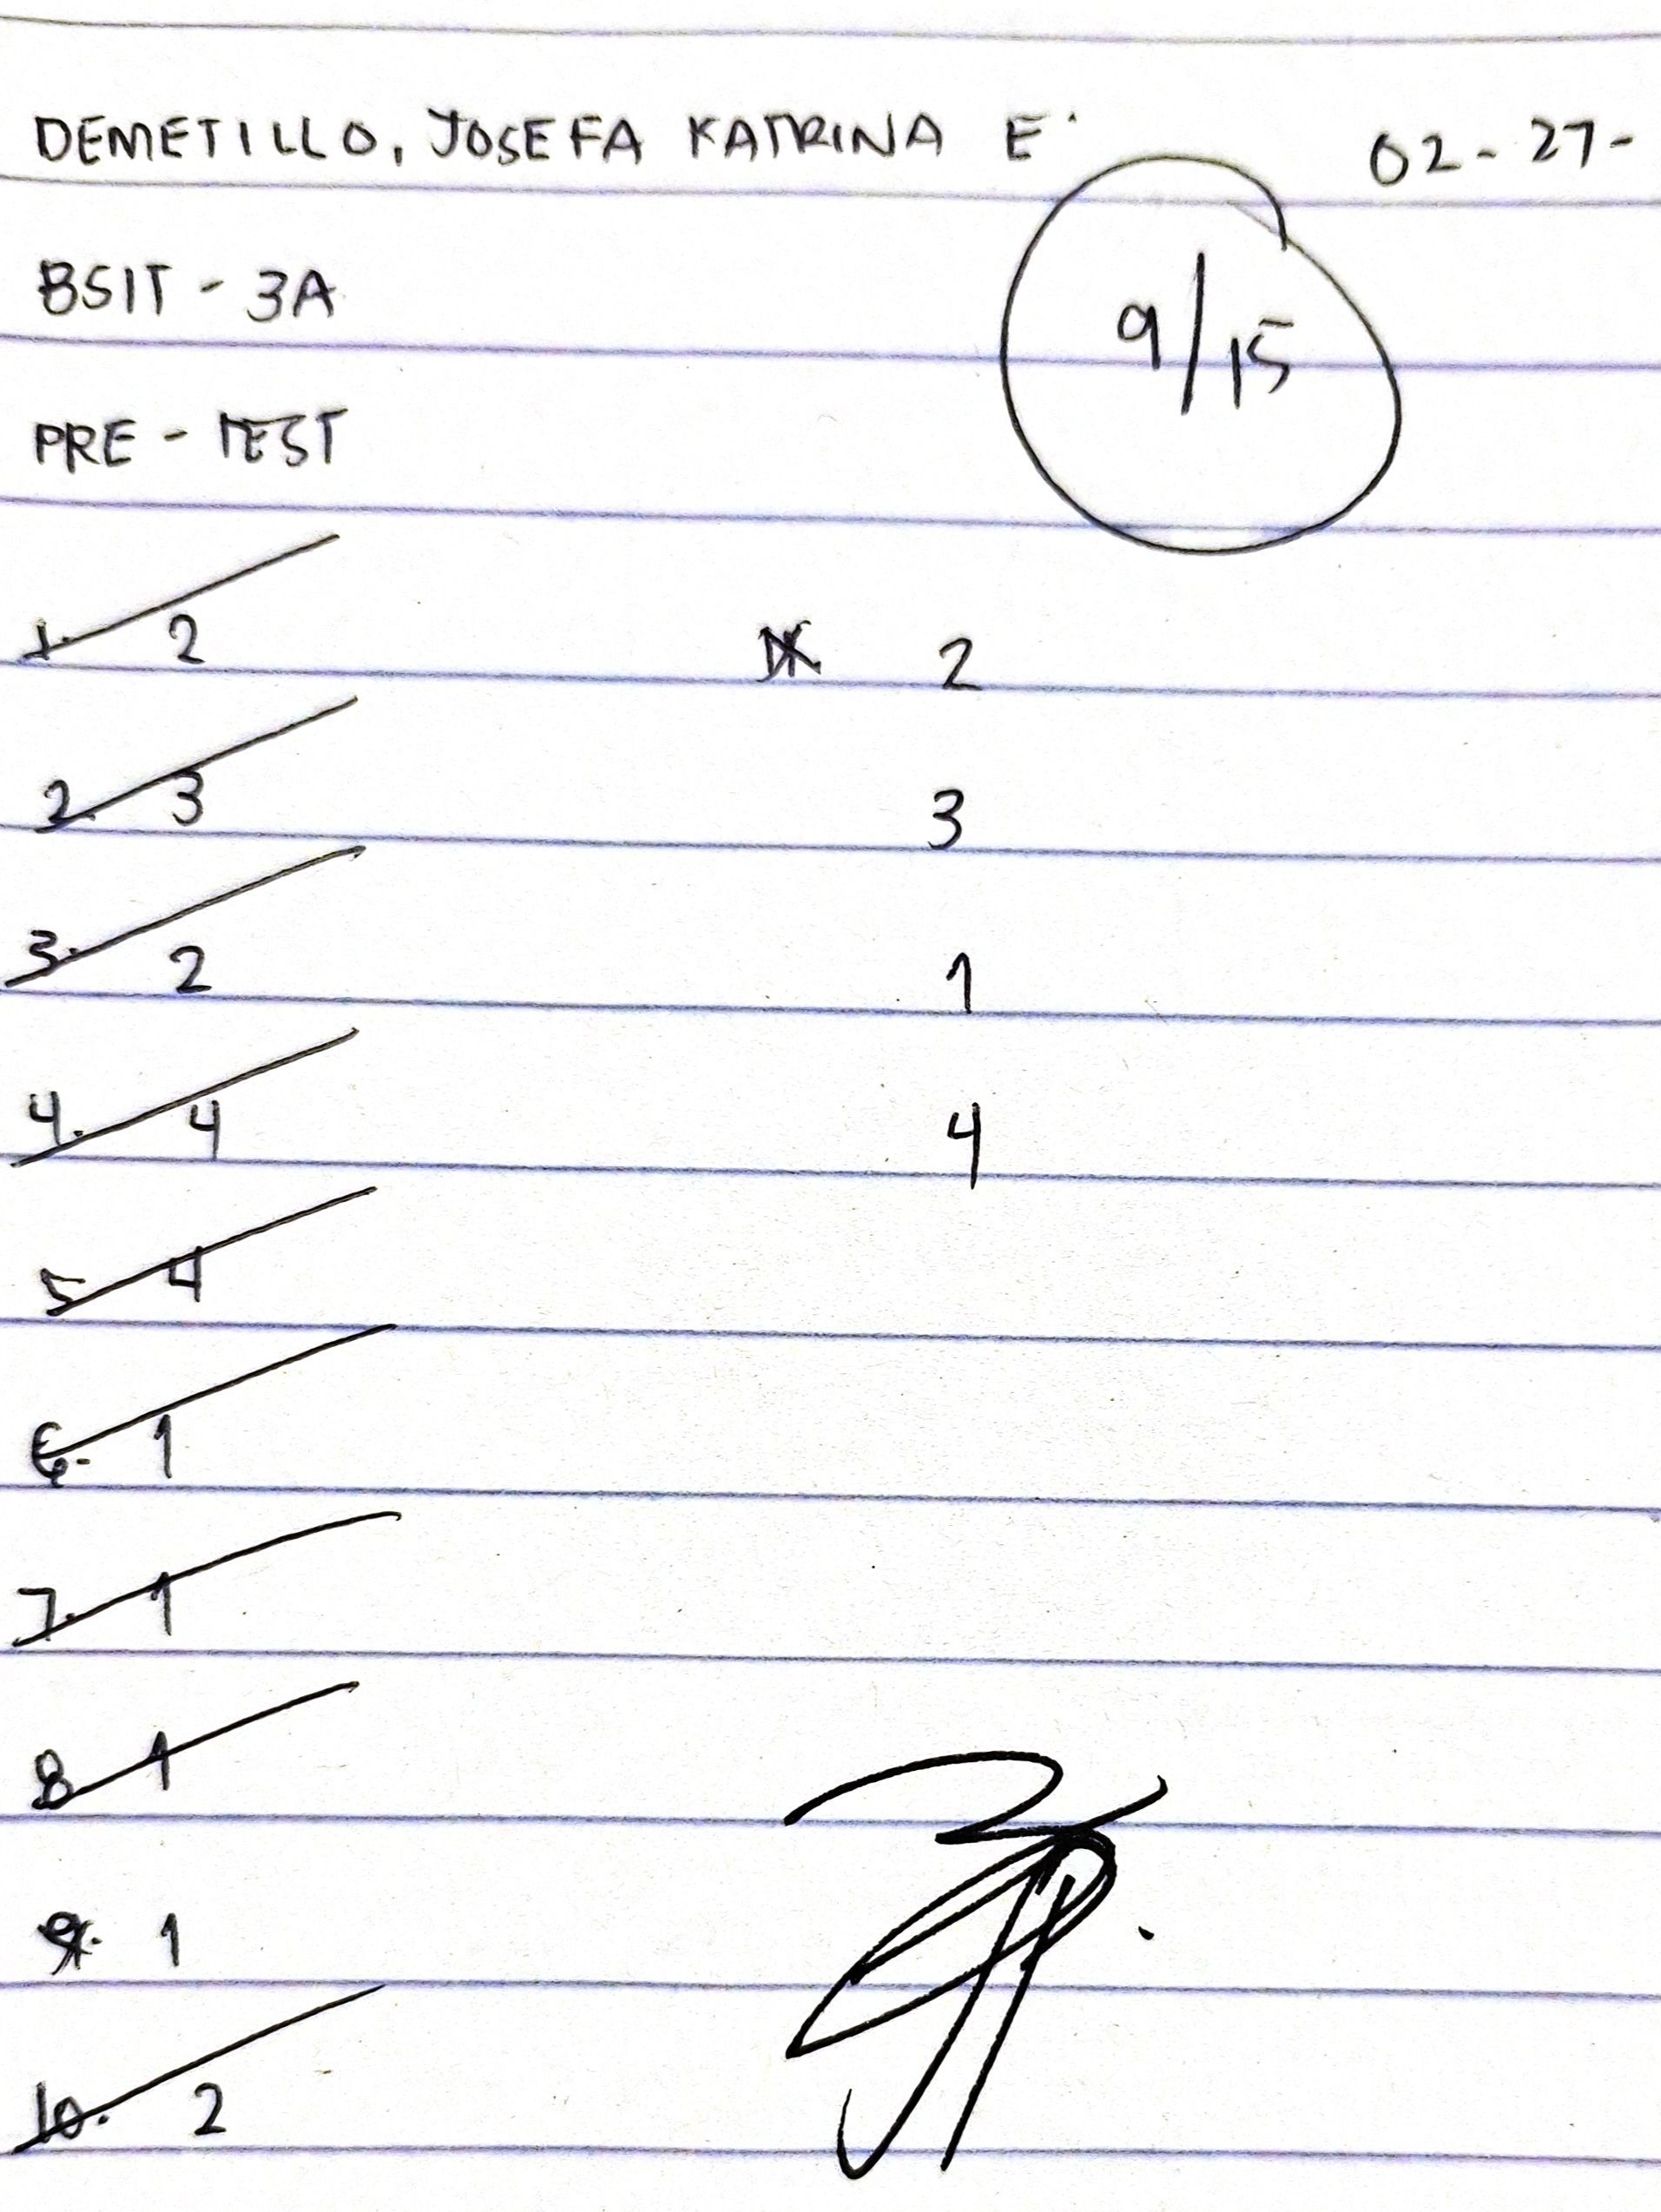 DEMETILLO, JOSEFA KATRINA E. 02-27-
BSIT - 3A
9/15
PRE-TEST
1. 2
2. 3
3. 2
4. 4
5 4
6. 1
7. 1
8 1
9. 1
10. 2
2
3
1
4